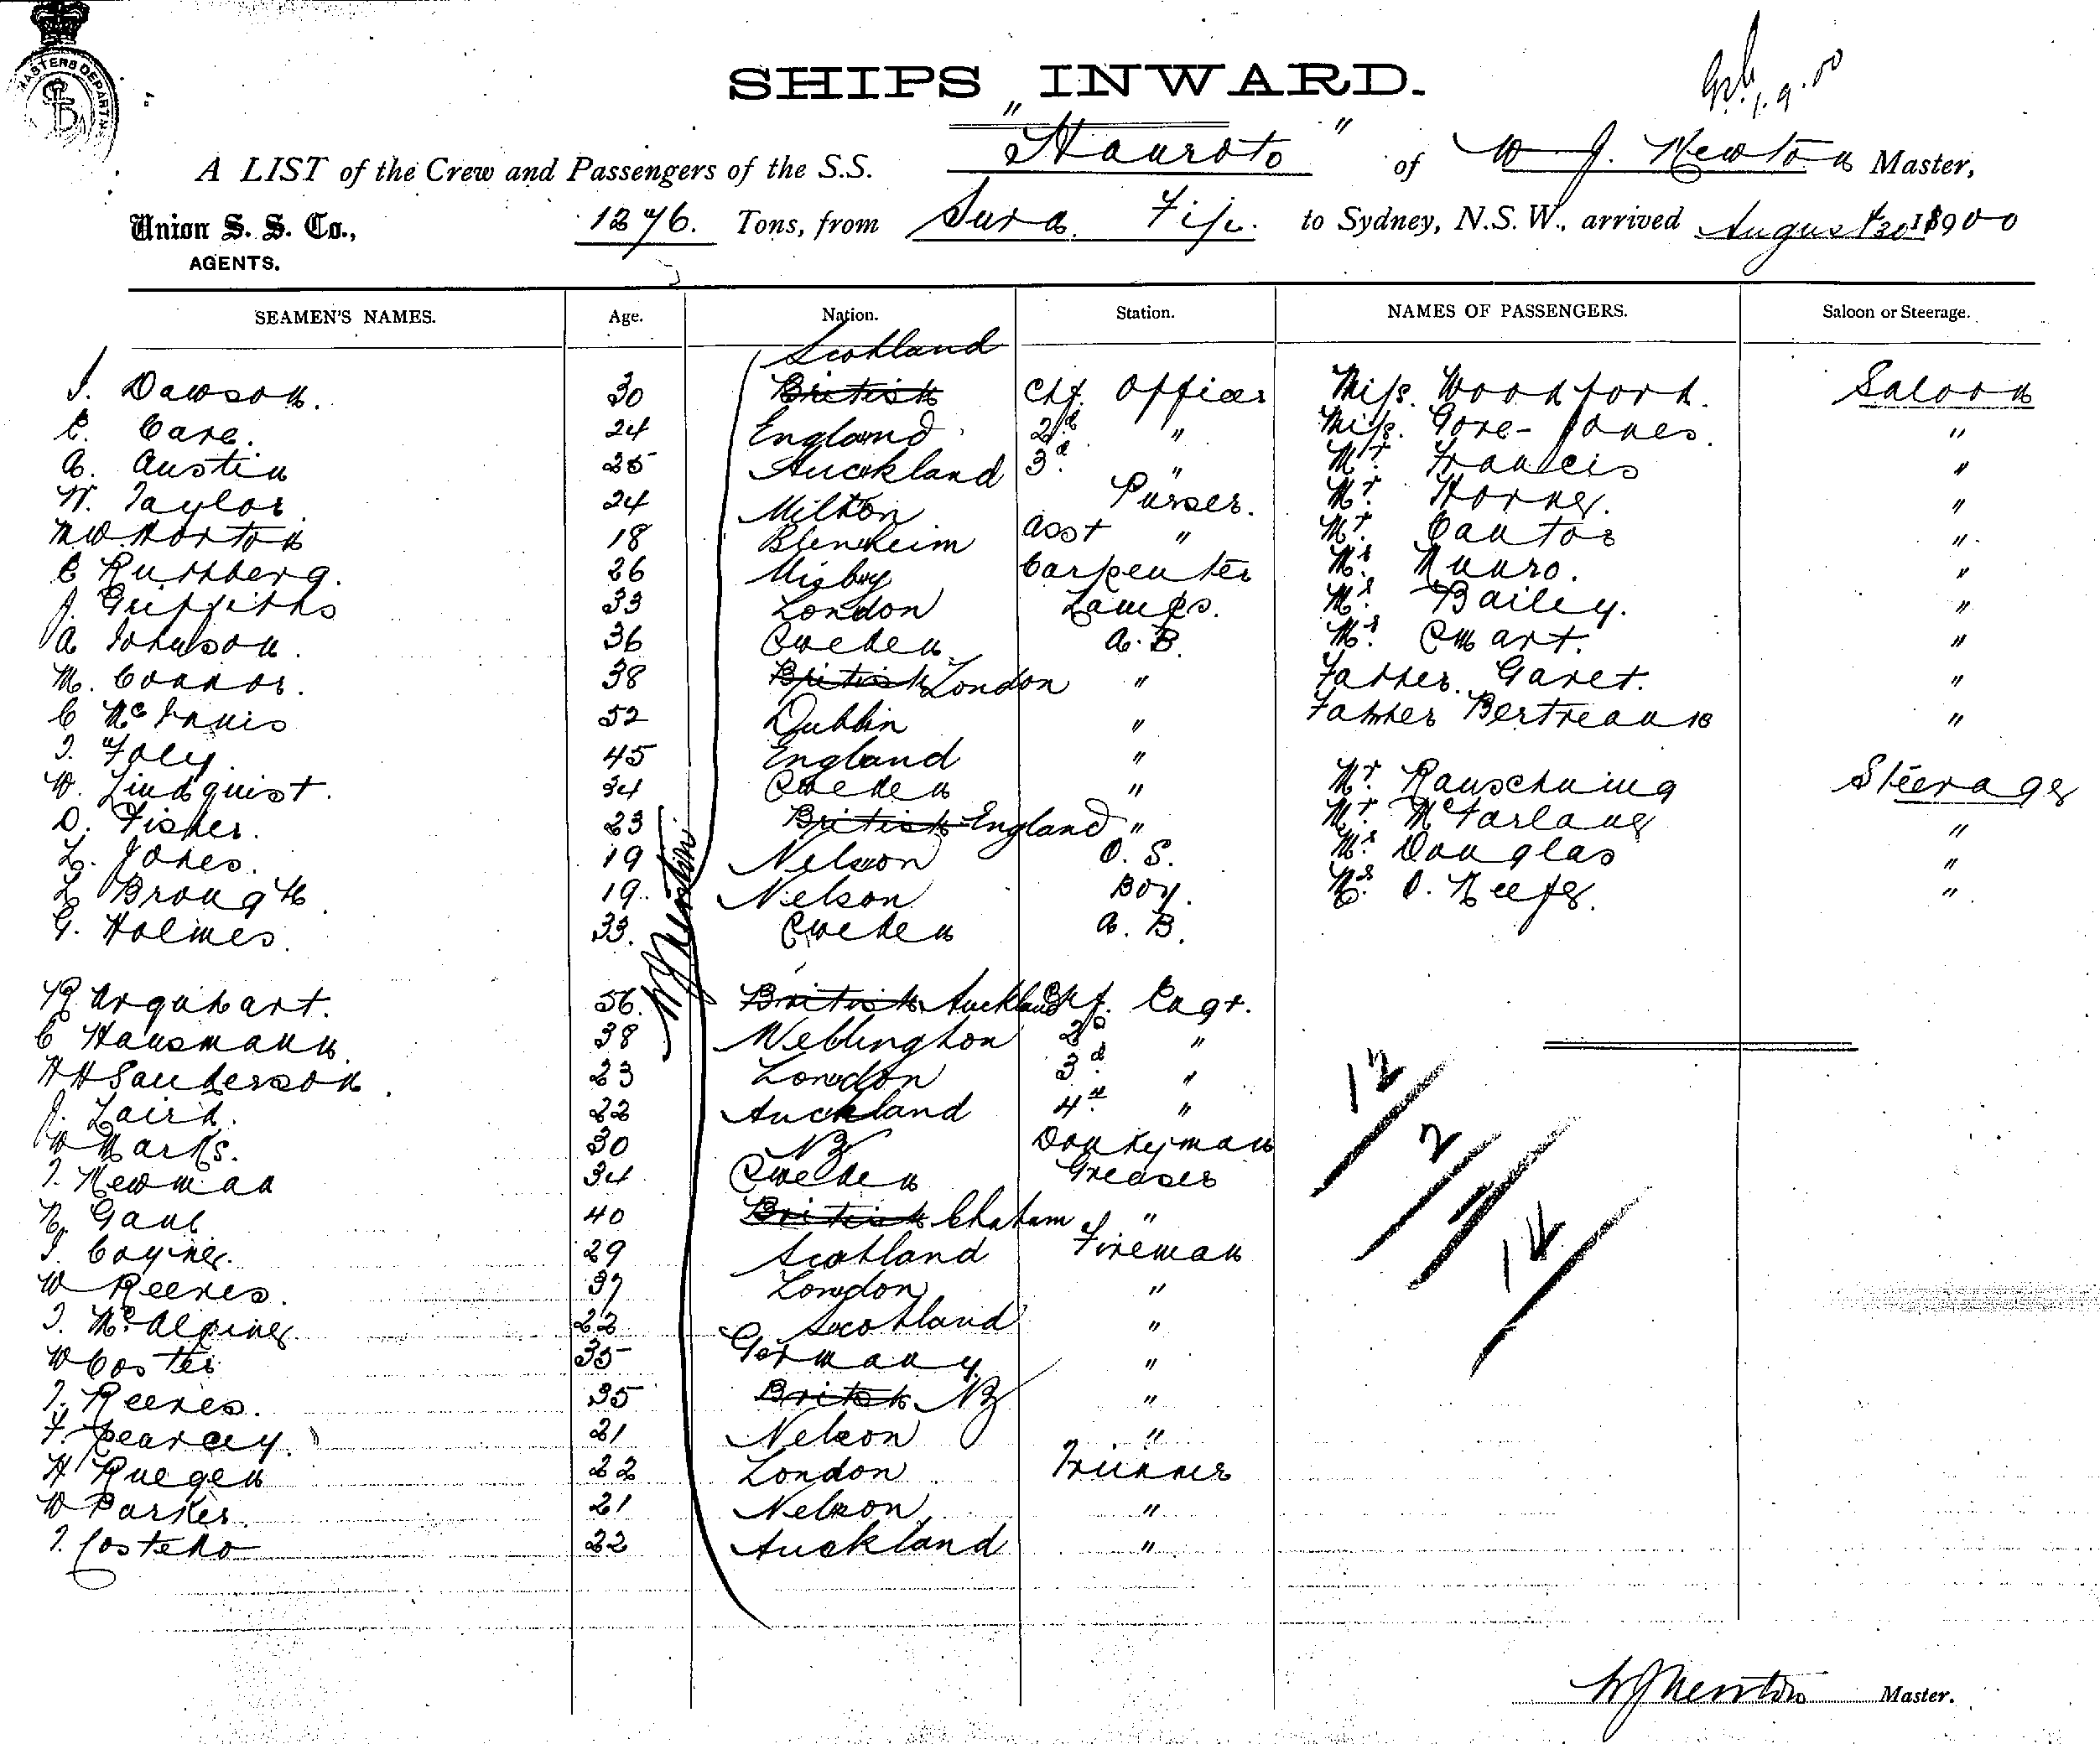 MASTERS DEPARTM
SHIPS INWARD.
1.9.00
A LIST of the Crew and Passengers of the S.S. "Hauroto" of W J. Newton Master,
Union S. S. Co., 1276. Tons, from Suva Fiji. to Sydney, N.S.W., arrived August 30 1900
AGENTS.
SEAMEN'S NAMES. Age. Nation. Station. NAMES OF PASSENGERS. Saloon or Steerage.
Scotland
J. Dawson. 30 British Chf. Officer Miss. Woodford. Saloon
C. Care. 24 England 2d " Miss. Gore-Jones. "
A. Austin 25 Auckland 3d. " Mr. Francis "
W. Taylor 24 Milton Purser. Mr. Horne. "
M W Horton 18 Blenheim Asst " Mr. Cantor "
C Ruthberg. 26 Misby Carpenter Mrs. Munro. "
J. Griffiths 33 London Lamps. Mrs. Bailey. "
A Johnson. 36 Sweden A. B. Mrs. Smart. "
M. Connor. 38 British London " Father. Garet. "
C McInnis 52 Dublin " Father Bertreaux "
T. Foley 45 England "
W. Lindquist. 34 Sweden " Mr. Rauschning Steerage
D. Fisher. 23 British England " Mr. McFarlane "
L. Jones. 19 Nelson O. S. Mrs. Douglas "
L Brough 19. Nelson Boy. Mrs. O. Keefe. "
G. Holmes. 33. Sweden A. B.
WJ Newton
R Urquhart. 56. British Auckland Chf. Engr.
C Hansmann. 38 Wellington 2d "
H H Sanderson. 23 London 3d. "
J. Laird. 22 Auckland 4th "
W Marks. 30 NZ Donkeyman
T. Newman 34 Sweden Greaser
N. Gaul 40 British Chatham "
T. Coyne. 29 Scotland Fireman
W Reeves. 37 London "
T. McAlpine. 22 Scotland "
W Coster 35 Germany "
T. Reeves. 35 British NZ "
F. Pearcey. 21 Nelson "
H Ruegen 22 London Trimmer
W Parker. 21 Nelson "
T. Costello 22 Auckland "
12
2
14
WJ Newton Master.